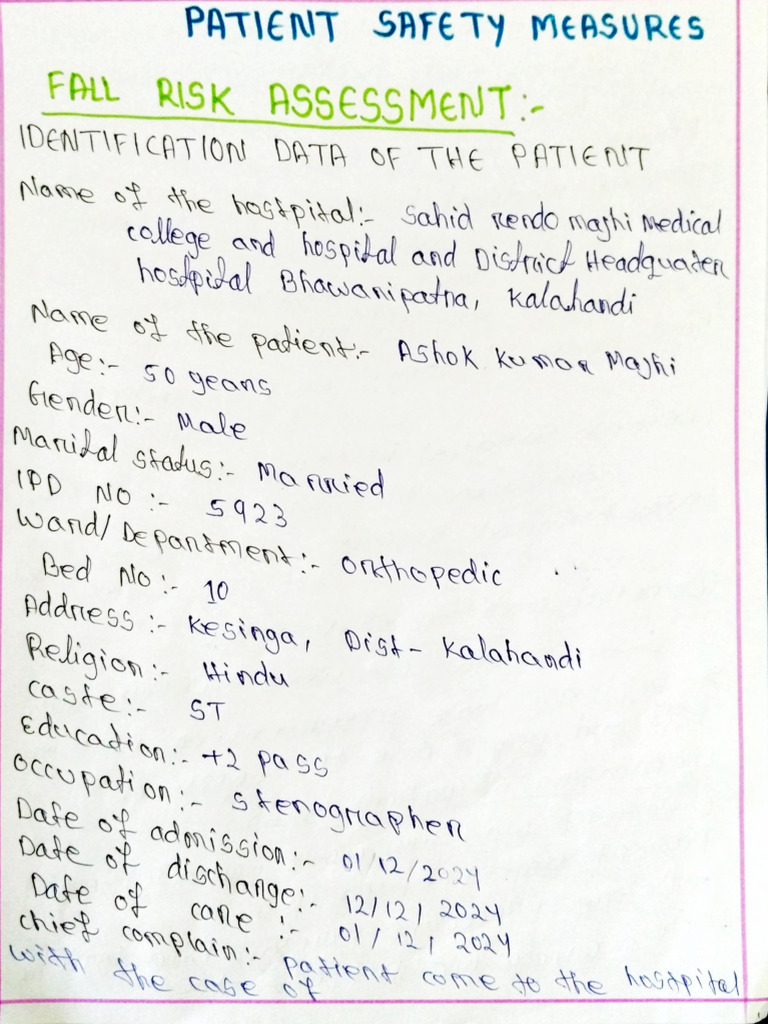 PATIENT SAFETY MEASURES
FALL RISK ASSESSMENT:-
IDENTIFICATION DATA OF THE PATIENT
Name of the hostpital:- Sahid Rendo majhi Medical
college and hospital and District Headquater
hostpital Bhawanipatna, Kalahandi
Name of the patient:- Ashok Kumar Majhi
Age:- 50 years
Gender:- Male
Marital status:- Married
IPD NO:- 5923
Ward/Department:- Orthopedic
Bed No:- 10
Address:- Kesinga, Dist- Kalahandi
Religion:- Hindu
caste:- ST
Education:- +2 pass
Occupation:- Stenographer
Date of admission:- 01/12/2024
Date of discharge:- 12/12/2024
Date of care:- 01/12/2024
chief complain:- patient come to the hostpital
with the case of